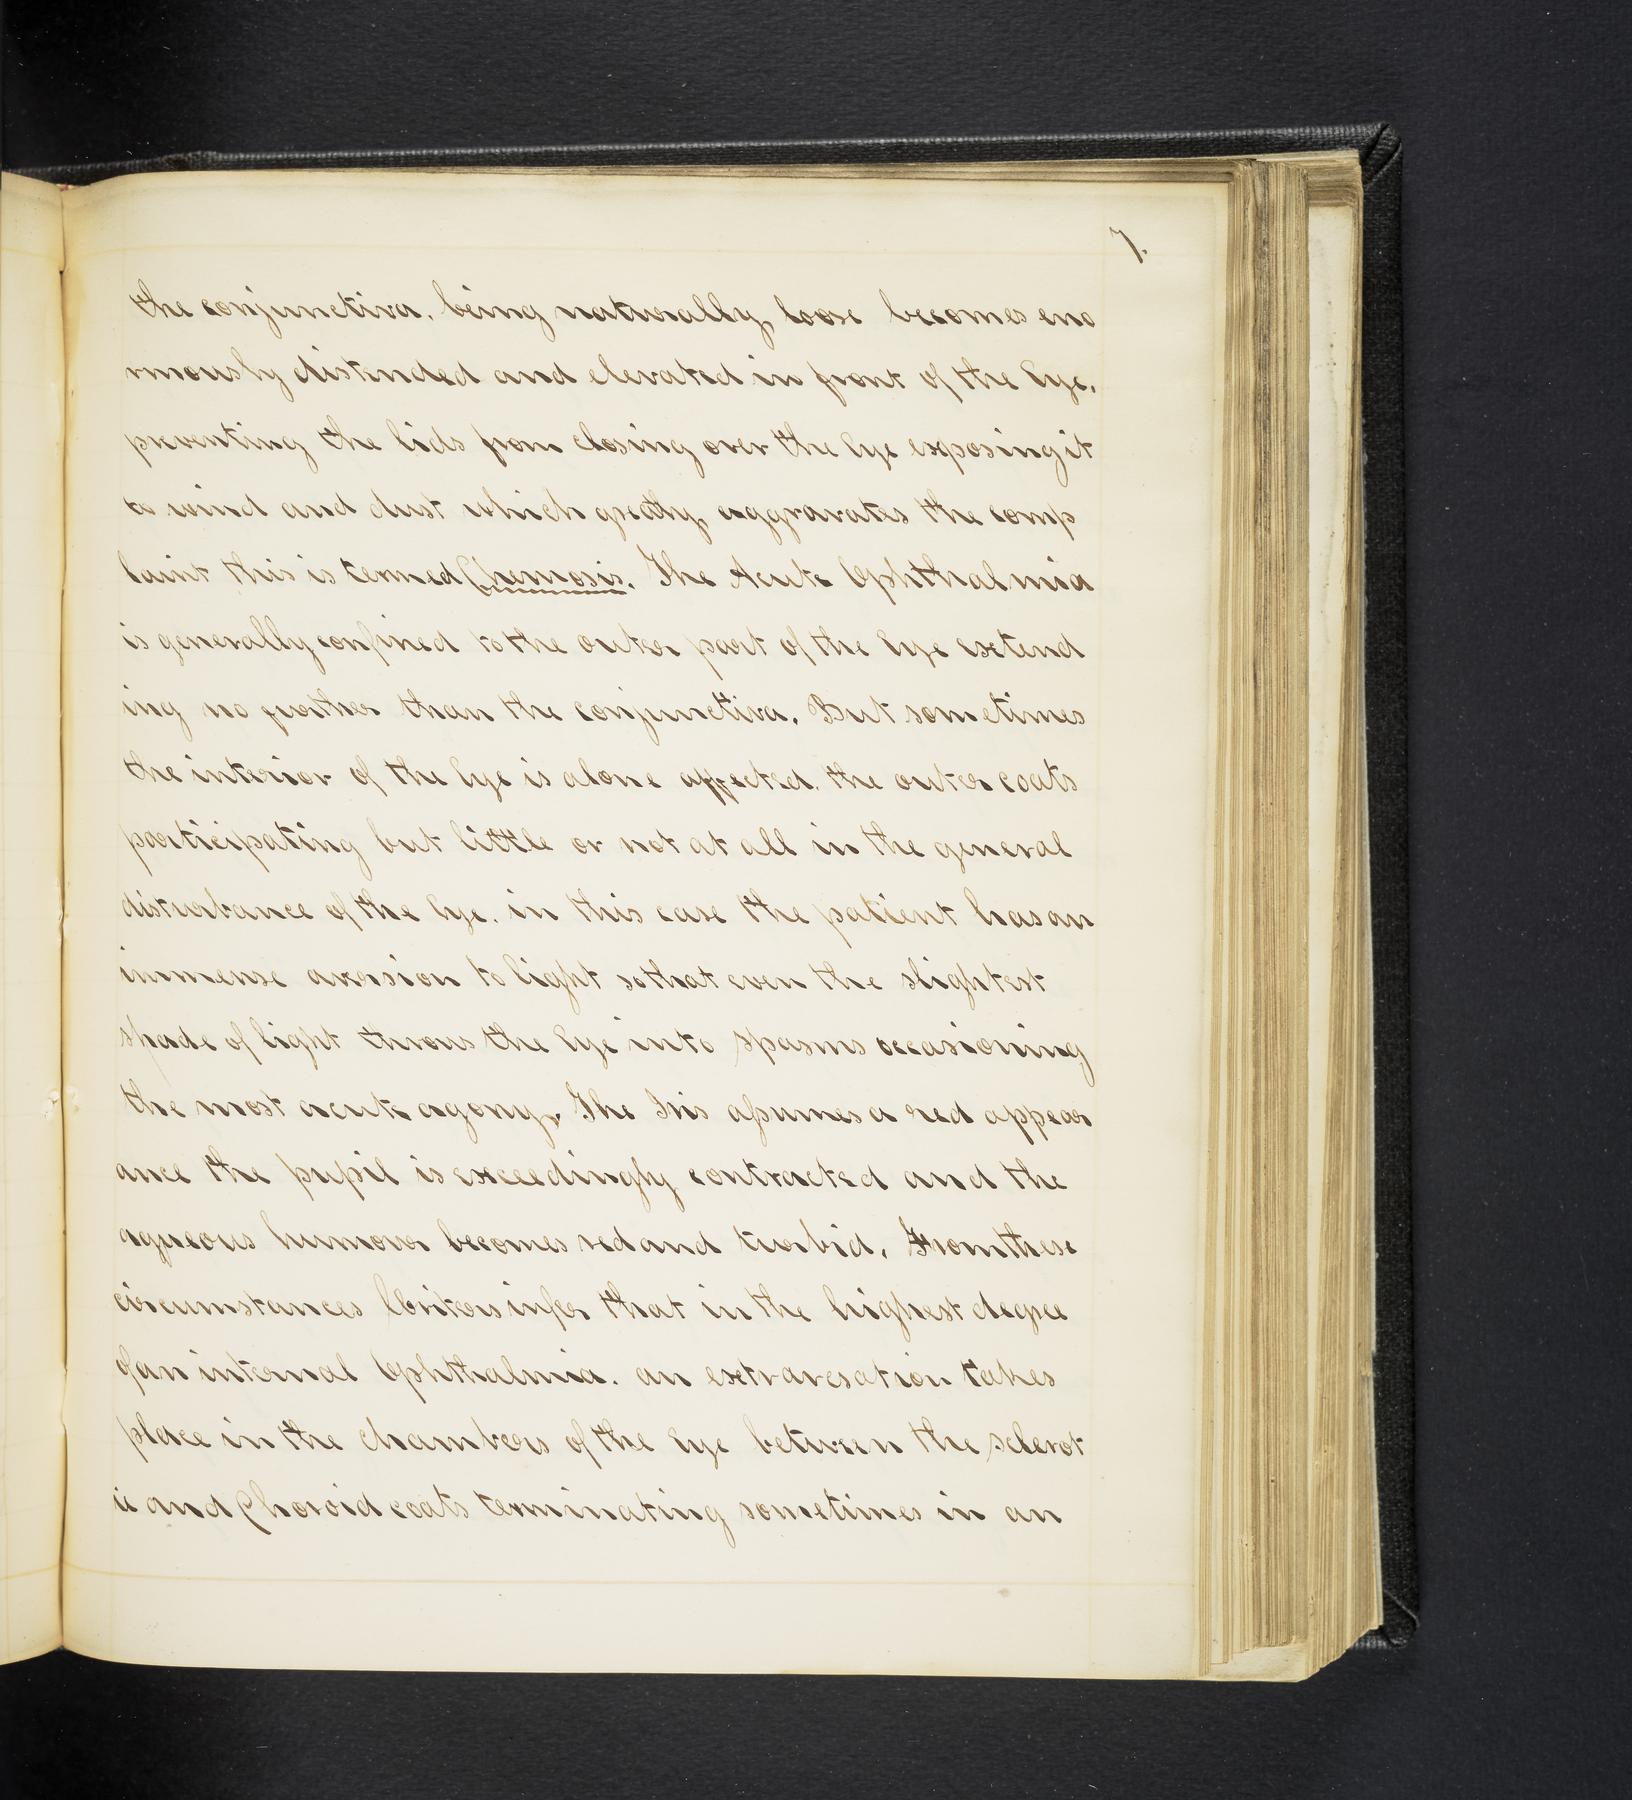 7.
the conjunctiva. being naturally loose becomes eno
rmously distended and elevated in front of the Eye.
preventing the lids from closing over the Eye exposing it
to wind and dust which greatly aggravates the comp
laint this is termed Chemosis. The Acute Ophthalmia
is generally confined to the outer part of the Eye extend
ing no further than the conjunctiva. But sometimes
the interior of the Eye is alone affected. the outer coats
participating but little or not at all in the general
disturbance of the Eye. in this case the patient has an
immense aversion to light so that even the slightest
shade of light throws the Eye into spasms occasioning
the most acute agony. The Iris assumes a red appear
ance the pupil is exceedingly contracted and the
aqueous humour becomes red and turbid. From these
circumstances Writers infer that in the highest degree
of an internal Ophthalmia. an extravesation takes
place in the chambers of the Eye between the sclerot
ic and Choroid coats terminating sometimes in an